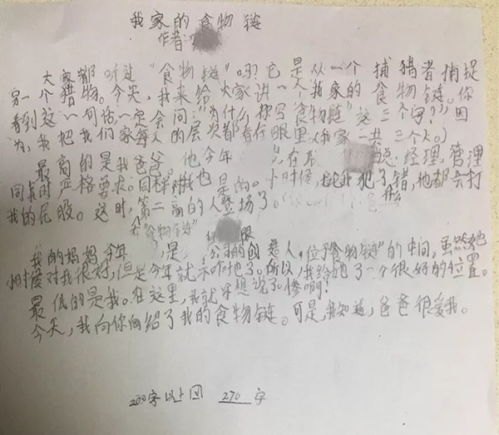 我家的食物链
作者
大家都听过“食物链”吗?它是从一个捕猎者捕捉
另一个猎物。今天,我来给大家讲一人我家的食物链。你
看到这一句话一定会问:“为什么你写食物链”这三个字?”因
为,我把我们家每人的层次都看在眼里(我家一共三个人)。
最高的是我爸爸,他今年 总经理,管理
同 严格要求。同样对我也是的。小时候,我犯了错,他都会打
我的屁股。这时,第二高的人登场了。
“食物链”
我的妈妈,今年 是 公司的 人,位于“食物链”的中间,虽然她
对我很好,但是今年就 了。所以,我给她了一个很好的位置。
最低的是我。在这里,我就不想说了,惨啊!
今天,我向你介绍了我的食物链。可是,我知道,爸爸很爱我。
200字以上 270 字